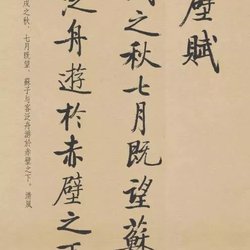 壁賦
戌之秋七月既望蘇
泛舟遊於赤壁之下
戌之秋，七月既望，蘇子与客泛舟游於赤壁之下。清風